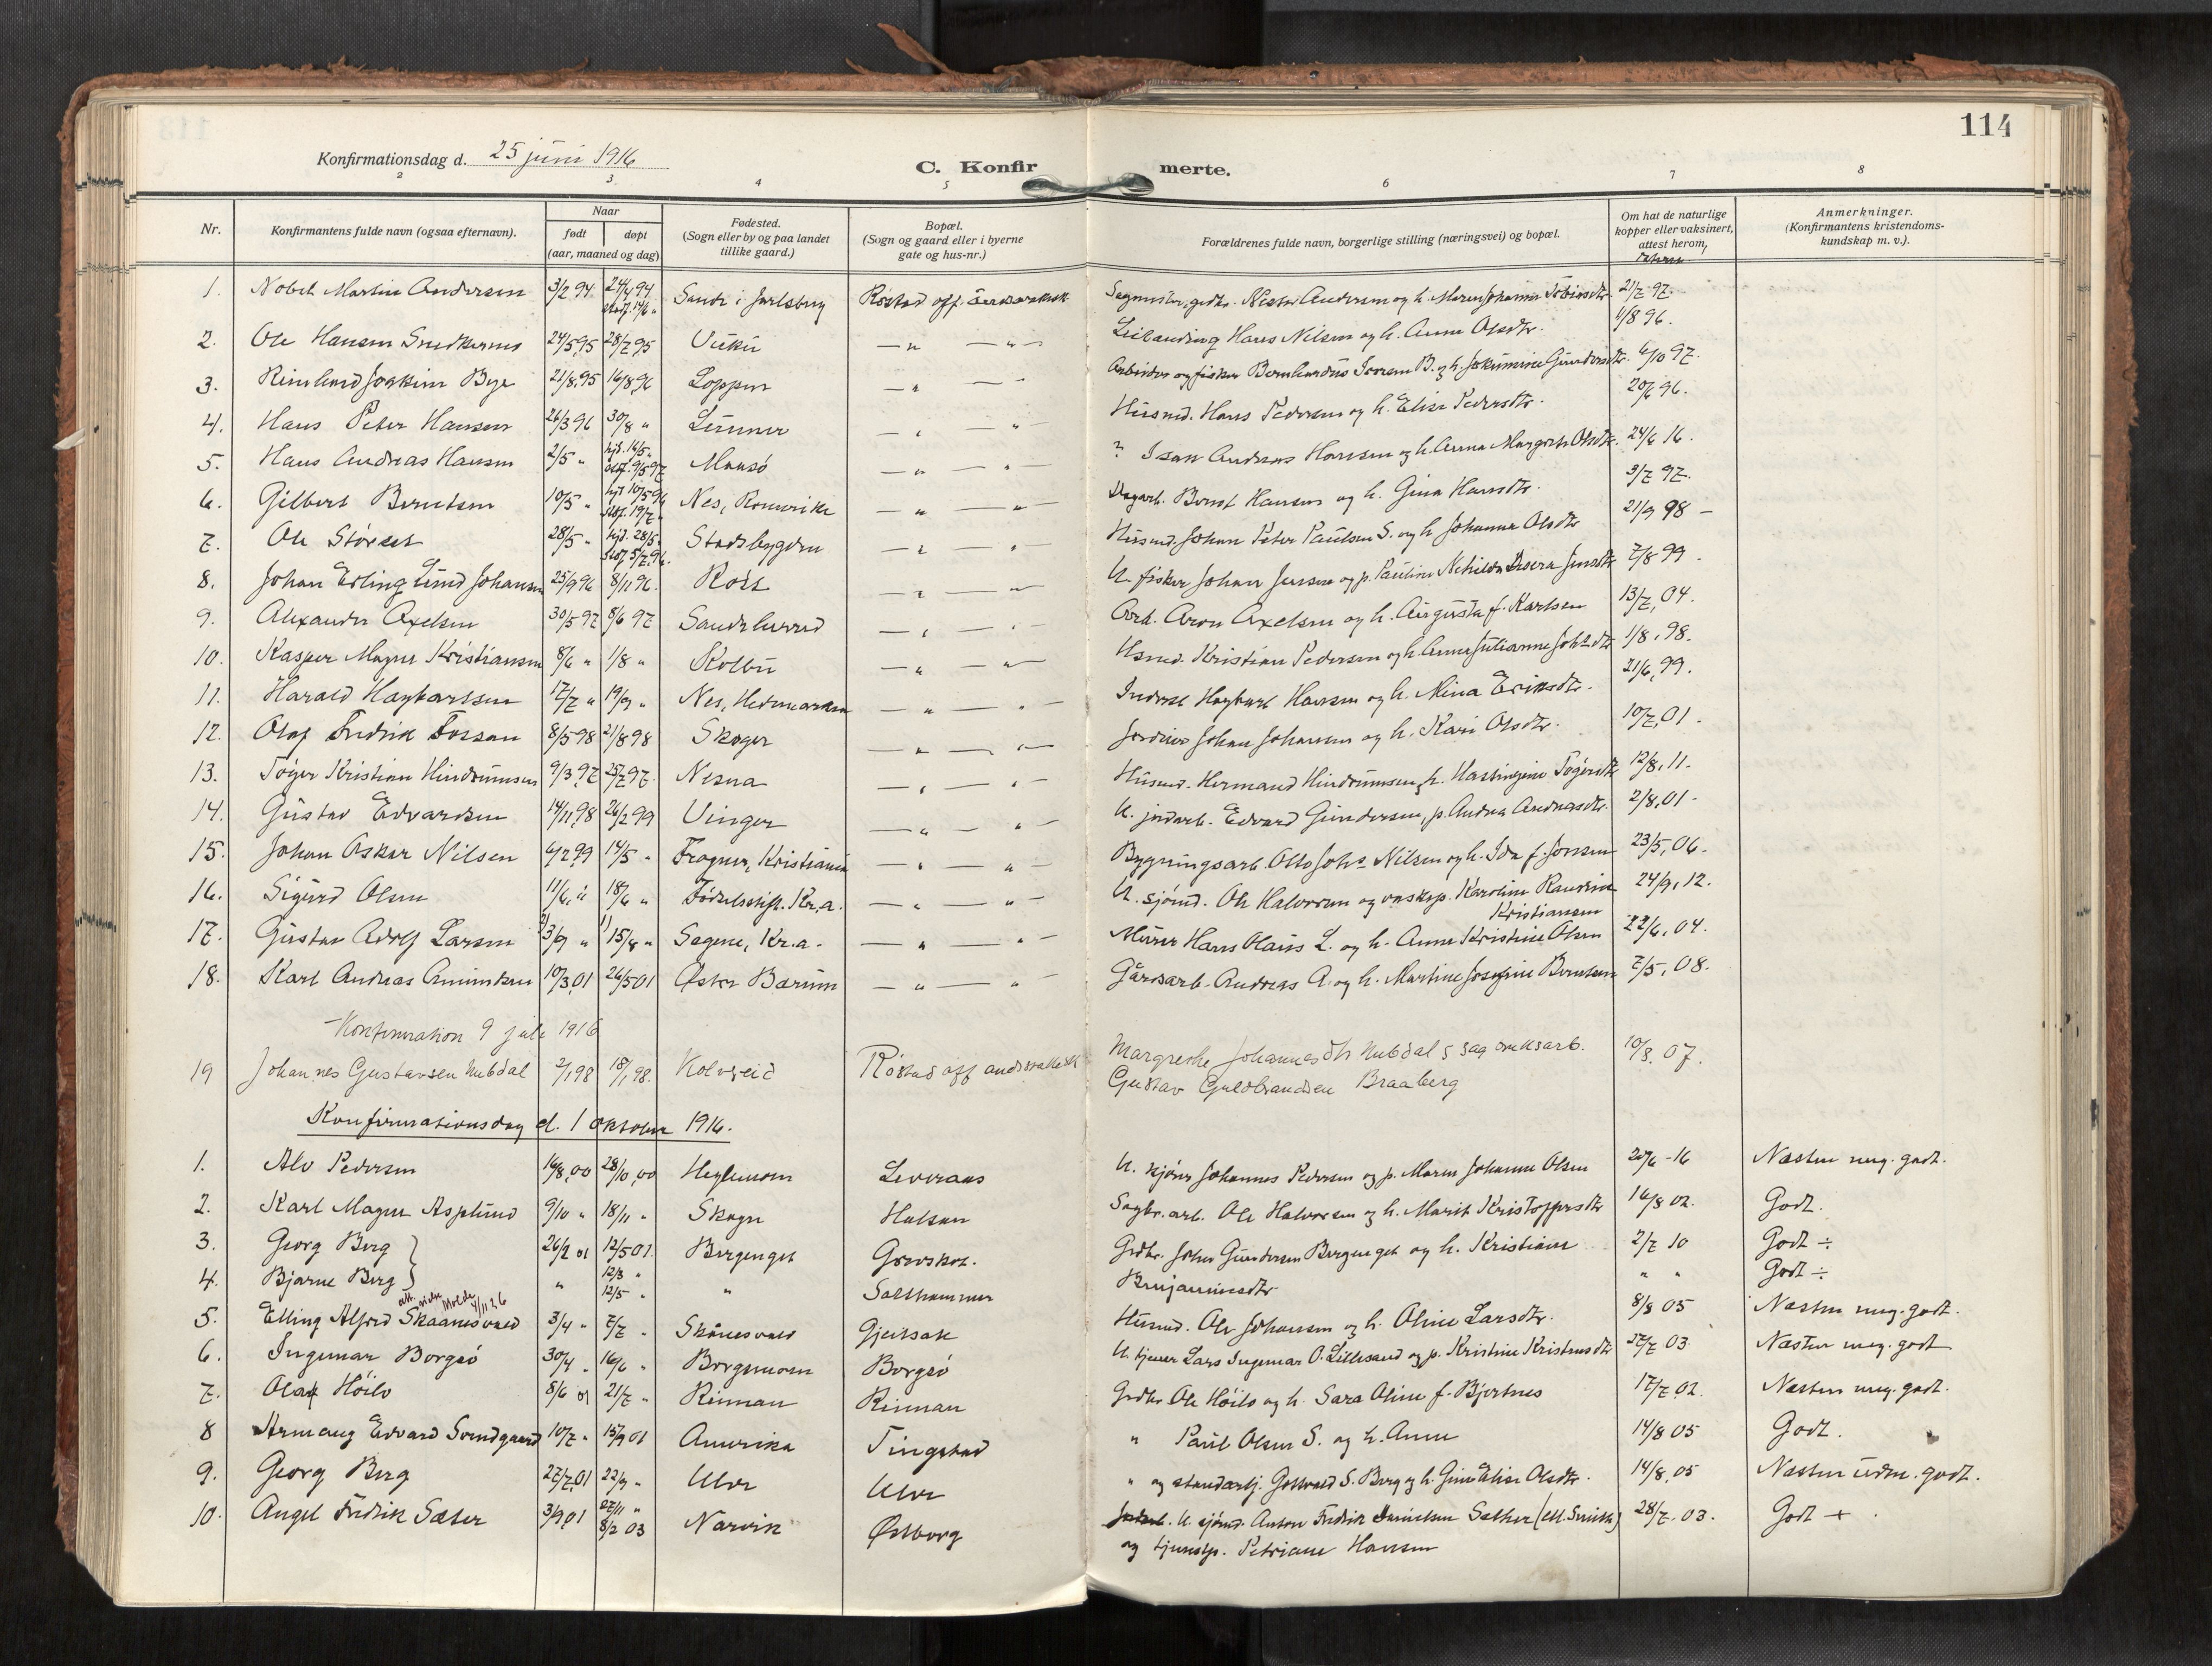 114
Konfirmationsdag d. 25 juni 1916
C. Konfirmerte.
2 3 4 5 6 7 8
Nr. Konfirmantens fulde navn (ogsaa efternavn). Naar født døpt (aar, maaned og dag) Fødested. (Sogn eller by og paa landet tillike gaard.) Bopæl. (Sogn og gaard eller i byerne gate og hus-nr.) Forældrenes fulde navn, borgerlige stilling (næringsvei) og bopæl. Om hat de naturlige kopper eller vaksinert, attest herom, Anmerkninger. (Konfirmantens kristendomskundskap m. v.).
1. Martin Andersen 3/2 94 24/4 94 Sande i Jarlsberg Røstad off. og h. Maren Johanne Tobiasdtr. 21/7 97.
2. Ole Hansen 24/5 95 28/7 95 Vuku — " — " — Hans Nilsen og h. Anne Olsdtr. 11/8 96.
3. Joakim Bye 21/8 95 16/8 96 Loppen — " — " Arbeider og fisker Bernhardus B. og h. 6/10 97.
4. Hans Peter Hansen 26/3 96 30/8 " Lunner — " — " — Husmd. Hans Pedersen og h. Elise Pedersdtr. 20/6 96.
5. Hans Andreas Hansen 2/5 " hjd. 14/5 " 9/5 97 Maasø — " — " — " Isak Andreas Hansen og h. Anna Margrete Olsdtr. 24/6 16.
6. Gilbert Berntsen 10/5 " hjd 10/5 96 19/7 " Nes, Romerike — " — " Dagarb. Bernt Hansen og h. Gina Hansdtr. 3/7 97.
7. Ole Størset 28/5 " hjd. 28/5 " 5/7 96. Stadsbygden — " — " Husmd. Johan Peter Paulsen S. og h. Johanna Olsdtr 21/9 98 —
8. Johan Erling Lund Johansen 25/9 96 8/11 96. Røst — " — " — U. fisker Johan Jensen og p. Pauline 7/8 99
9. Alexander Axelsen 30/5 97 8/6 97 Sandeherred — " — " Arb. Aron Axelsen og h. Augusta f. Karlsen 13/7, 04.
10. Kasper Magnus Kristiansen 8/6 " 1/8 " Kolbu — " — " — Hsmd. Kristian Pedersen og h. Anne Julianne Johsdtr 1/8, 98.
11. Harald Haybartsen 17/7 " 19/9 " Nes, Hedmarken — " — " — Haybart Hansen og h. Mina Eriksdtr. 21/6, 99.
12. Olaf Fredrik Fossan 8/5 98 21/8 98 Skoger — " — " — Johan Johansen og h. Kari Olsdtr. 10/7, 01.
13. Tøger Kristian Hindrumsen 9/3 97 25/7 97. Nesna — " — " Husmd. Hermand Hindrumsen, h. Tøgersdtr 12/8, 11.
14. Gustav Edvardsen 14/11 98 26/2 99 Vinger — " — " — U. jndarb. Edvard Gundersen, p. Andrea Andreasdtr. 2/8, 01.
15. Johan Oskar Nilsen 6/2 99 14/5 " Frogner, Kristiania — " — " Bygningsarb. Otto Johs Nilsen og h. Ida f. Jonsen 23/5, 06.
16. Sigurd Olsen 11/6, " 18/6 " Fødselsstift. Kr.a. — " — " — U. sjømd. Ole Halvorsen og vaskep. Karoline Kristiansen 24/9, 12.
17. Gustav Adolf Larsen 3/9 " 15/8 " Sagene, Kr.a. — " — " — Murer Hans Olaus L. og h. Anne Kristine Olsen 22/6, 04.
18. Karl Andreas 10/3 01 26/5 01 Øster Bærum — " — " Gårdsarb. Andreas A. og h. Martine Josefine Berntsen 7/5, 08.
Konfirmation 9 juli 1916
19 Johannes Gustavsen Nubdal 2/1 98 18/1 98. Kolvereid Røstad off Margrethe Johannesdtr Nubdal
10/8. 07.
Gustav Guldbrandsen Braaberg
Konfirmationsdag d. 1 oktober 1916.
1. Alv Pedersen 16/8, 00 28/10, 00 Heglemoen Levraas U. kjører Johannes Pedersen og p. Maren Johanne Olsen 20/6 - 16 Næsten meg. godt.
2. Karl Magne Asplund 9/10 " 18/11 " Skogn Halsan Sagbr. arb. Ole Halvorsen og h. Marit Kristoffersdtr 16/8 02. Godt.
3. Georg Berg 26/2 01 12/5 01. Bergenget Grdbr. Johan Gundersen Bergenget og h. Kristiane 2/7 10 Godt ÷
4. Bjarne Berg " 12/3 " 12/5 " " Salthammer Benjaminsdtr " " Godt ÷
att. Molde 4/11 26
5. Elling Alfred Skaanesvald 3/4 " 7/7 " Skånesvald Gjeilsak Husmd. Ole Johansen og h. Oline Larsdtr. 8/8 05 Næsten meg. godt.
6. Ingemar Borgsø 30/4 " 16/6 " Borgsmoen Borgsø U. tjener Lars Ingemar O. Lillesand og p. Kristine 27/7 03. Næsten meg. godt
7. Olaf Höilo 8/6 01 21/7 " Rinnan Rinnan Grdbr. Ole Höilo og h. Sara Oline f. Bjertnes 17/7 02. Næsten meg. godt.
8 Edvard Sundgaard 10/7 " 15/9 01 Amerika Tingstad " Paul Olsen S. og h. Anne 14/8 05 Godt.
9. Georg Berg 27/7 01 22/9 " Ulve Ulve " og Gottvald S. Berg og h. Gine Elise Olsdtr. 14/8. 05 Næsten udm. godt.
10. Angel Fredrik Sæter 3/9 01 27/11 " 8/2 03 Narvik Østborg U. sjømd. Anton Fredrik Danielsen Sæther (ell. Smith) 28/7. 03. Godt +
og tjenestp. Petriane Hansen